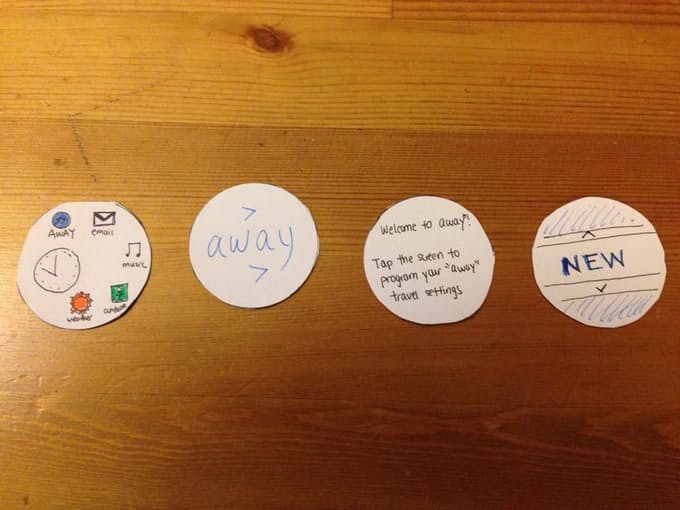 AWAY
email
music
weather
away
Welcome to away"!
Tap the screen to
program your "away"
travel settings
NEW